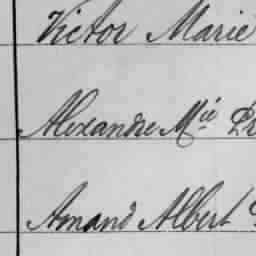 Victor Marie
Alexandre Mie Pr
Amand Albert